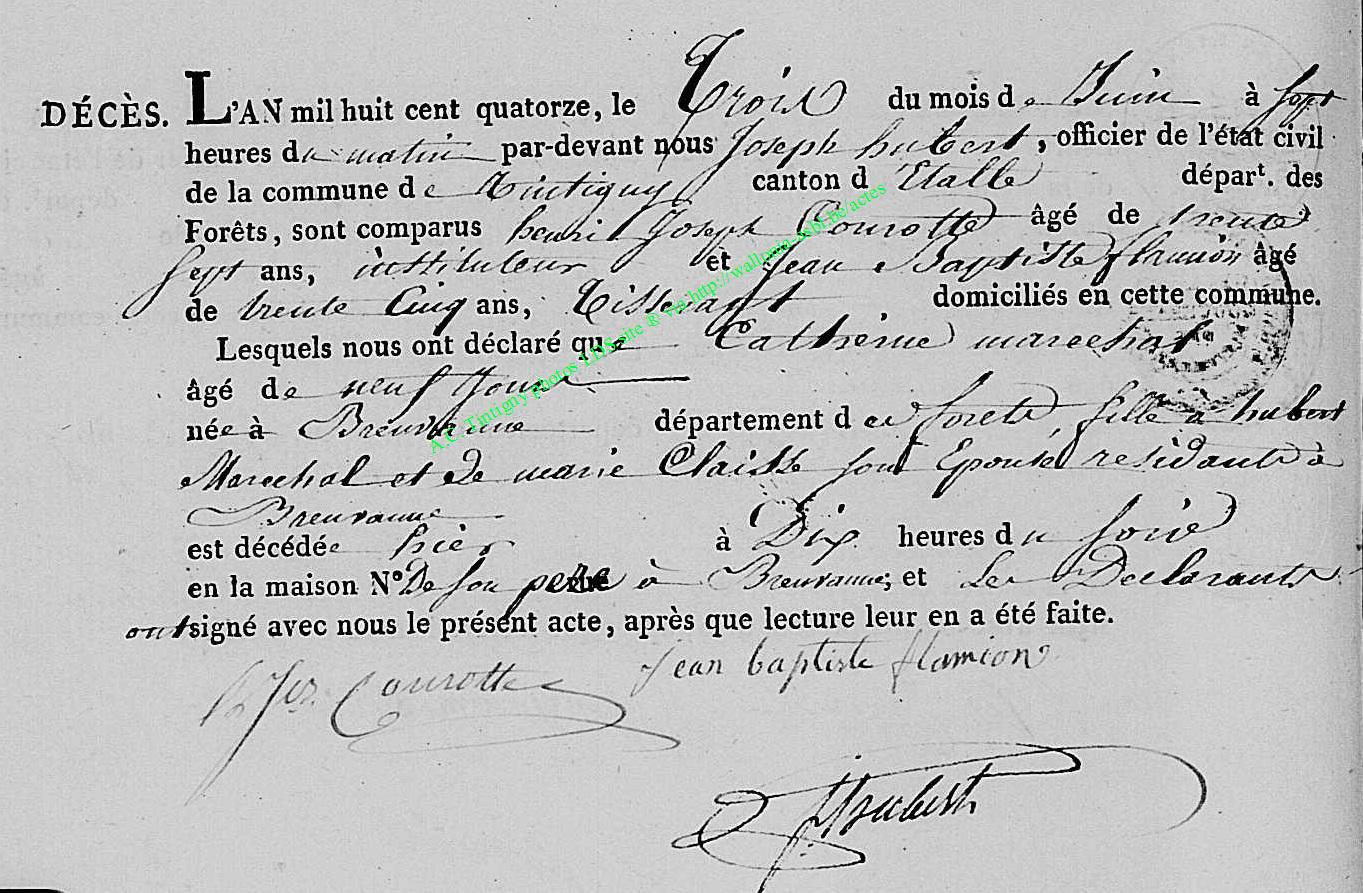 DÉCÈS. L'AN mil huit cent quatorze, le Trois du mois de Juin à Sept
heures du matin par-devant nous Joseph hubert, officier de l'état civil
de la commune de Tintigny canton d'Etalle départ. des
Forêts, sont comparus henri Joseph Courotte âgé de trente
Sept ans, instituteur et Jean Baptiste flamion âgé
de trente Cinq ans, Tisserant domiciliés en cette commune.
Lesquels nous ont déclaré que Catherine marechal
âgé de neuf Jours
née à Breuvanne département des forets, fille a hubert
Marechal et de marie Claisse son Epouse residants à
Breuvanne
est décédée hier à Dix heures du soir
en la maison N° De son pere à Breuvanne; et Les Declarants
ont signé avec nous le présent acte, après que lecture leur en a été faite.
h Jos. Courotte Jean baptiste flamion
JHubert
A.C. Tintigny photos LDS site © via http://wallonia-asbl.be/actes